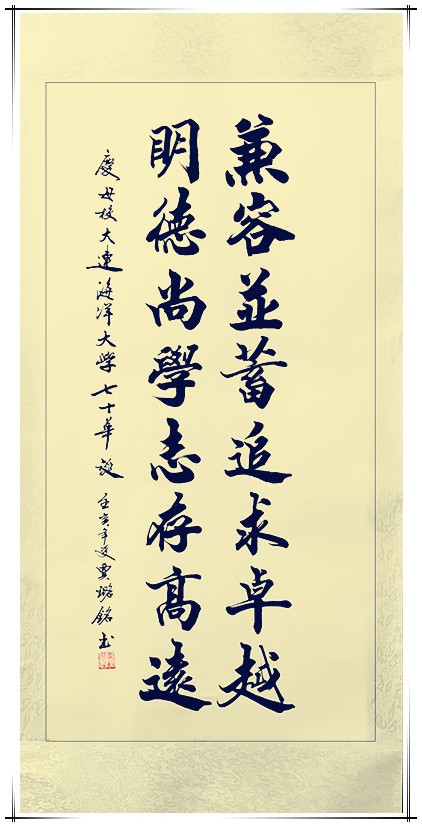 兼容並蓄追求卓越
明德尚學志存高遠
慶母校大連海洋大学七十華誕
壬寅年夏賈璐銘书